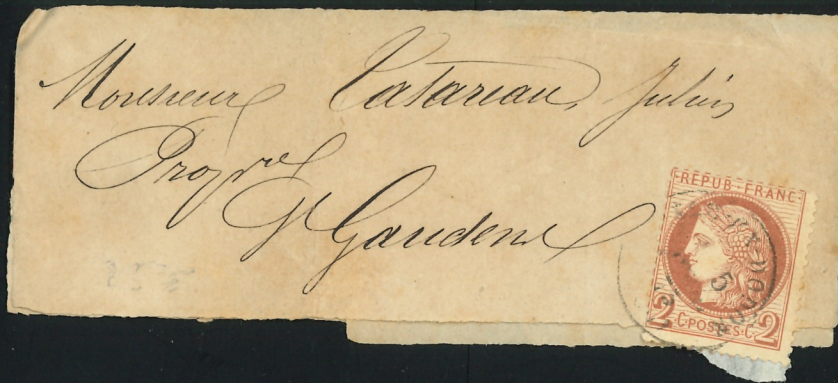 Monsieur Catareau, Julien
Propre
St Gaudens
REPUB·FRANC
2 C·POSTES·C· 2
5